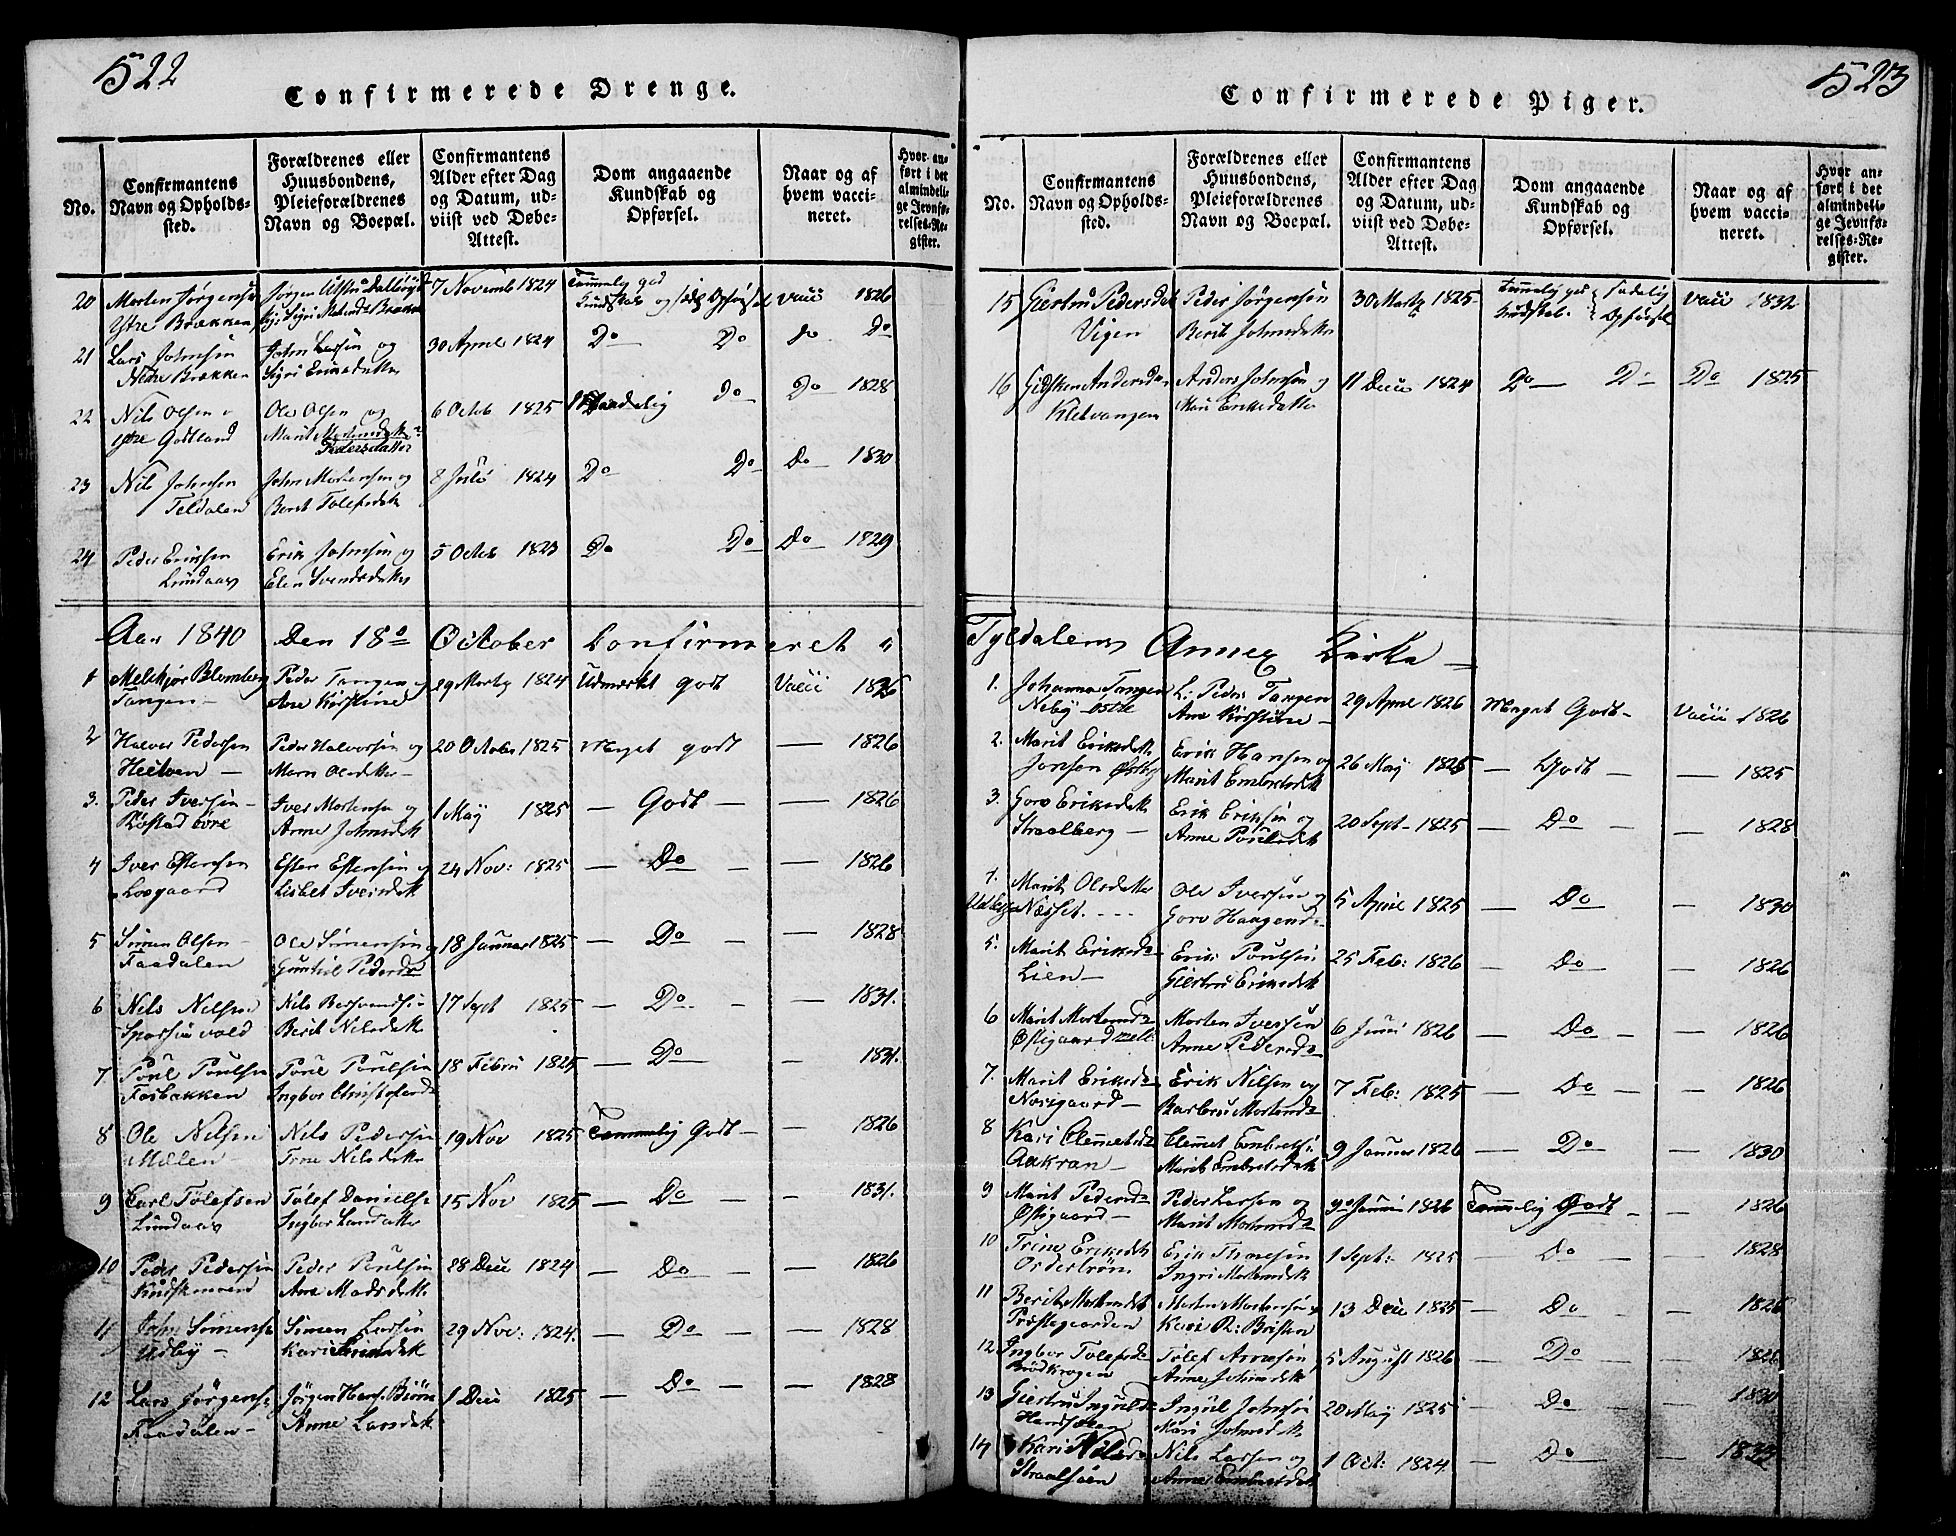 522
Confirmerede Drenge.
No.
Confirmantens Navn og Opholdssted.
Forældrenes eller Huusbondens, Pleieforældrenes Navn og Boepæl.
Confirmantens Alder efter Dag og Datum, udviist ved Døbe-Attest.
Dom angaaende Kundskab og Opførsel.
Naar og af hvem vaccineret.
Hvor anført i det almindelige Jevnførelses-Register.
20 Morten Jørgensen Jørgen 7 Novemb 1824 Temmelig god Vacc 1826
Ytre Brækken Kundskab og
21 Lars Johnsen John Larsen og 30 April 1824 Do Do Do Do
Nedre Brækken Sigri Eriksdatter
22 Nils Olsen Ole Olsen og 6 Octob 1825 Maadelig Do Do 1828
ytre Godtland Marit Mortensdatter
Pedersdatter
23 Nils Johnsen John Mortensen og 8 Juli 1824 Do Do Do 1830
Teldalen Berit Tolefsdtr
24 Peder Eriksen Erik Johnsen og 5 Octob 1823 Do Do Do 1829
Lundaas Elen Svendsdatter
Aar 1840 Den 18de October Confirmeret i
1 Melchior Blomberg Peder Tangen og 29 Marty 1824 Udmærket godt Vacc 1826
Tangen — Ane Kirstine
2 Halvor Pedersen Peder Halvorsen og 20 October 1825 Meget godt — 1826
Heitven — Marn Olsdatter —
3. Peder Iversen — Iver Mortensen og 1 May 1825 — Godt — — 1826
Røstad øvre Anne Johnsdtr
4 Iver Estensen Esten Estensen og 24 Nov: 1825 — Do — — 1826
Løegaard Lisbet Iversdtr
5 Simen Olsen — Ole Simensen og 18 Januar 1825 — Do — — 1828
Faadalen Guniul Pedersdr
6 Nils Nilsen Nils 17 Sept 1825 — Do — — 1831.
Berit Nilsdatter
7 Poul Poulsen Poul Poulsen 18 Febru 1825 — Do — 1831.
Fosbakken Ingbor Christofersdr
8 Ole Nilsen Nils Pedersen 19 Nov 1825 Temmelig Godt — — 1826
Mælen — Trne Nilsdatter
9 Carl Tolefsen Tolef Danielsen 15 Nov 1825 — Do — — 1831.
Lundaas Ingbor Larsdatter
10 Peder Pedersen Peder Poulsen 28 Dec 1824 — Do — 1826
Ane Madsdatter
11 John Simensen Simen Larsen 29 Nov: 1824. — Do — — 1828
Udby — Kari
12 Lars Jørgensen Jørgen Hans. Biørn 1 Dec 1825 — Do — — 1828
Faadalen — Anne Larsdtr
523
Confirmerede Piger.
No.
Confirmantens Navn og Opholdssted.
Forældrenes eller Huusbondens, Pleieforældrenes Navn og Boepæl.
Confirmantens Alder efter Dag og Datum, udviist ved Døbe-Attest.
Dom angaaende Kundskab og Opførsel.
Naar og af hvem vaccineret.
Hvor anført i det almindelige Jevnførelses-Register.
15 Giertru Pedersdat Peder Jørgensen 30 Marty 1825 Temmelig god Sædelig Vacc 1832
Vigen Berit Johnsdatter Kundskab. Opførsel
16 Gidsken Andersdr Anders Johnsen og 11 Dec 1824 Do — Do Do 1825
Kletvangen Mari Eriksdatter
Tyldalens Annex Kirke —
1. Johanna Tangen L: Peder Tangen 29 April 1826 Meget Godt — Vacc 1826
Neby østre Ane Kirstine —
2. Marit Eriksdtr Erik Hansen og 26 May 1825 — Godt — — 1825
Jonsen Østby Marit Embretsdtr
3. Goro Eriksdtr Erik Eriksen og 20 Sept — 1825 — Do — — 1828
Straalberg — Anne Poulsdtr
4. Marit Olsdatter Ole Iversen og 5 April 1825 — Do — 1830
Næsset. Goro Haagensdr
5. Marit Eriksdr Erik Poulsen 25 Feb: 1826 — Do — — 1826
Lien — Giertru Eriksdtr
6 Marit Mortensdr Morten Iversen 6 Juni 1826 — Do — — 1826
Østigaard mell. Anne Pedersdr
7. Marit Eriksdr Erik Nilsen og 7 Feb: 1825 — Do — — 1826
Norigaard — Barbru Mortensdr
8 Kari Clemetsdr Clemet Embretsen 9 Januar 1826 — Do — — 1830
Aakran — Marit Embretsdtr
9 Marit Pedersdr Peder Larsen og 9de Januari 1826 Temmelig Godt — — 1826
Østigaard — Marit Mortensdr
10 Trine Eriksdtr Erik 1 Sept: 1825 — Do — — 1828
Orderstrøm Ingri Mortensdtr
11 Berit Mortensdtr Morten Mortensen og 13 Dec 1825 — Do — 1826
Præstegaarden Kari R: Bristen
12 Ingbor Tolefsdr Tolef Arnesen 5 August 1826 — Do — — 1826
Brødkrogen Anne Johnsdtr
13 Giertru Ingulsdr Ingul Johnsen 20 May 1825 — Do — — 1830
Mari Johnsdtr
14 Kari Nilsdr Nils Larsen og 1 Oct: 1824 — Do — — 1832
Straalsøen Anne Embretsdtr